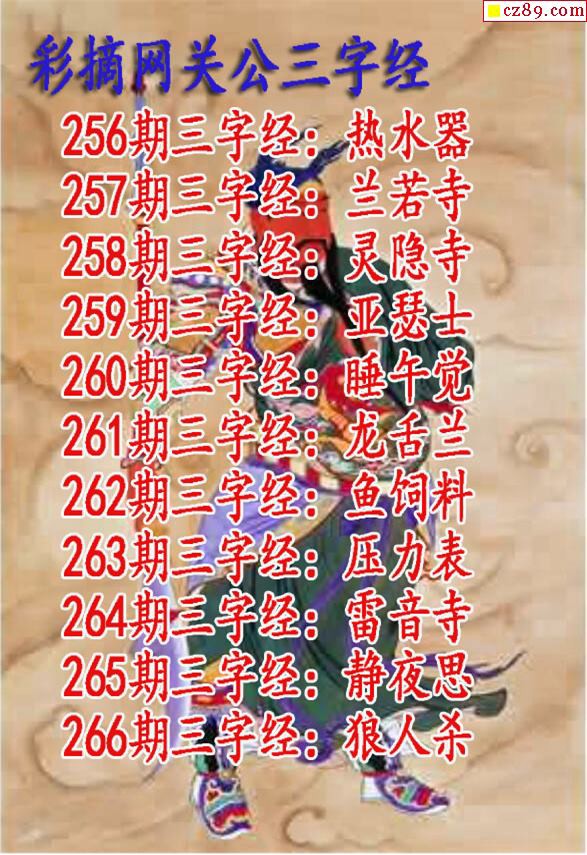 cz89.com
彩摘网关公三字经
256期三字经：热水器
257期三字经：兰若寺
258期三字经：灵隐寺
259期三字经：亚瑟士
260期三字经：睡午觉
261期三字经：龙舌兰
262期三字经：鱼饲料
263期三字经：压力表
264期三字经：雷音寺
265期三字经：静夜思
266期三字经：狼人杀